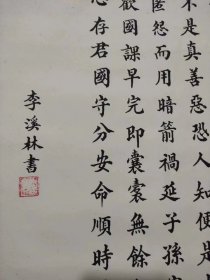 不是真善惡恐人知便是
匿怨而用暗箭禍延子孫
歡國課早完即囊橐無餘
心存君國守分安命順時
李溪林書